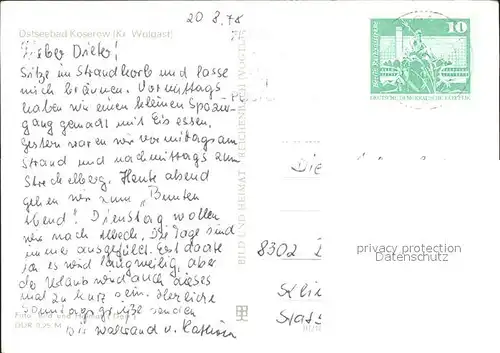 20.8.78
Ostseebad Koserow (Kr. Wolgast)
Lieber Dieter!
Sitze im Strandkorb und lasse
mich bräunen. Vormittags
haben wir einen kleinen Spazier-
gang gemacht mit Eis essen.
Gestern waren wir vormittags am
Strand und nachmittags am
Streckelberg. Heute abend
gehen wir zum "Bunten
Abend". Dienstag wollen
wir nach Ahlbeck. Die Tage sind
immer ausgefüllt. Erst dachte
ich es wird langweilig, aber
der Urlaub wird auch dieses
mal zu kurz sein. Herzliche
Sonntagsgrüße senden
Dir Waltraud u. Kathrin
Foto: Bild und Heimat
DDR 0,20 M
BILD UND HEIMAT REICHENBACH (VOGTL)
10
DEUTSCHE DEMOKRATISCHE REPUBLIK
Die
8302
privacy protection
Datenschutz